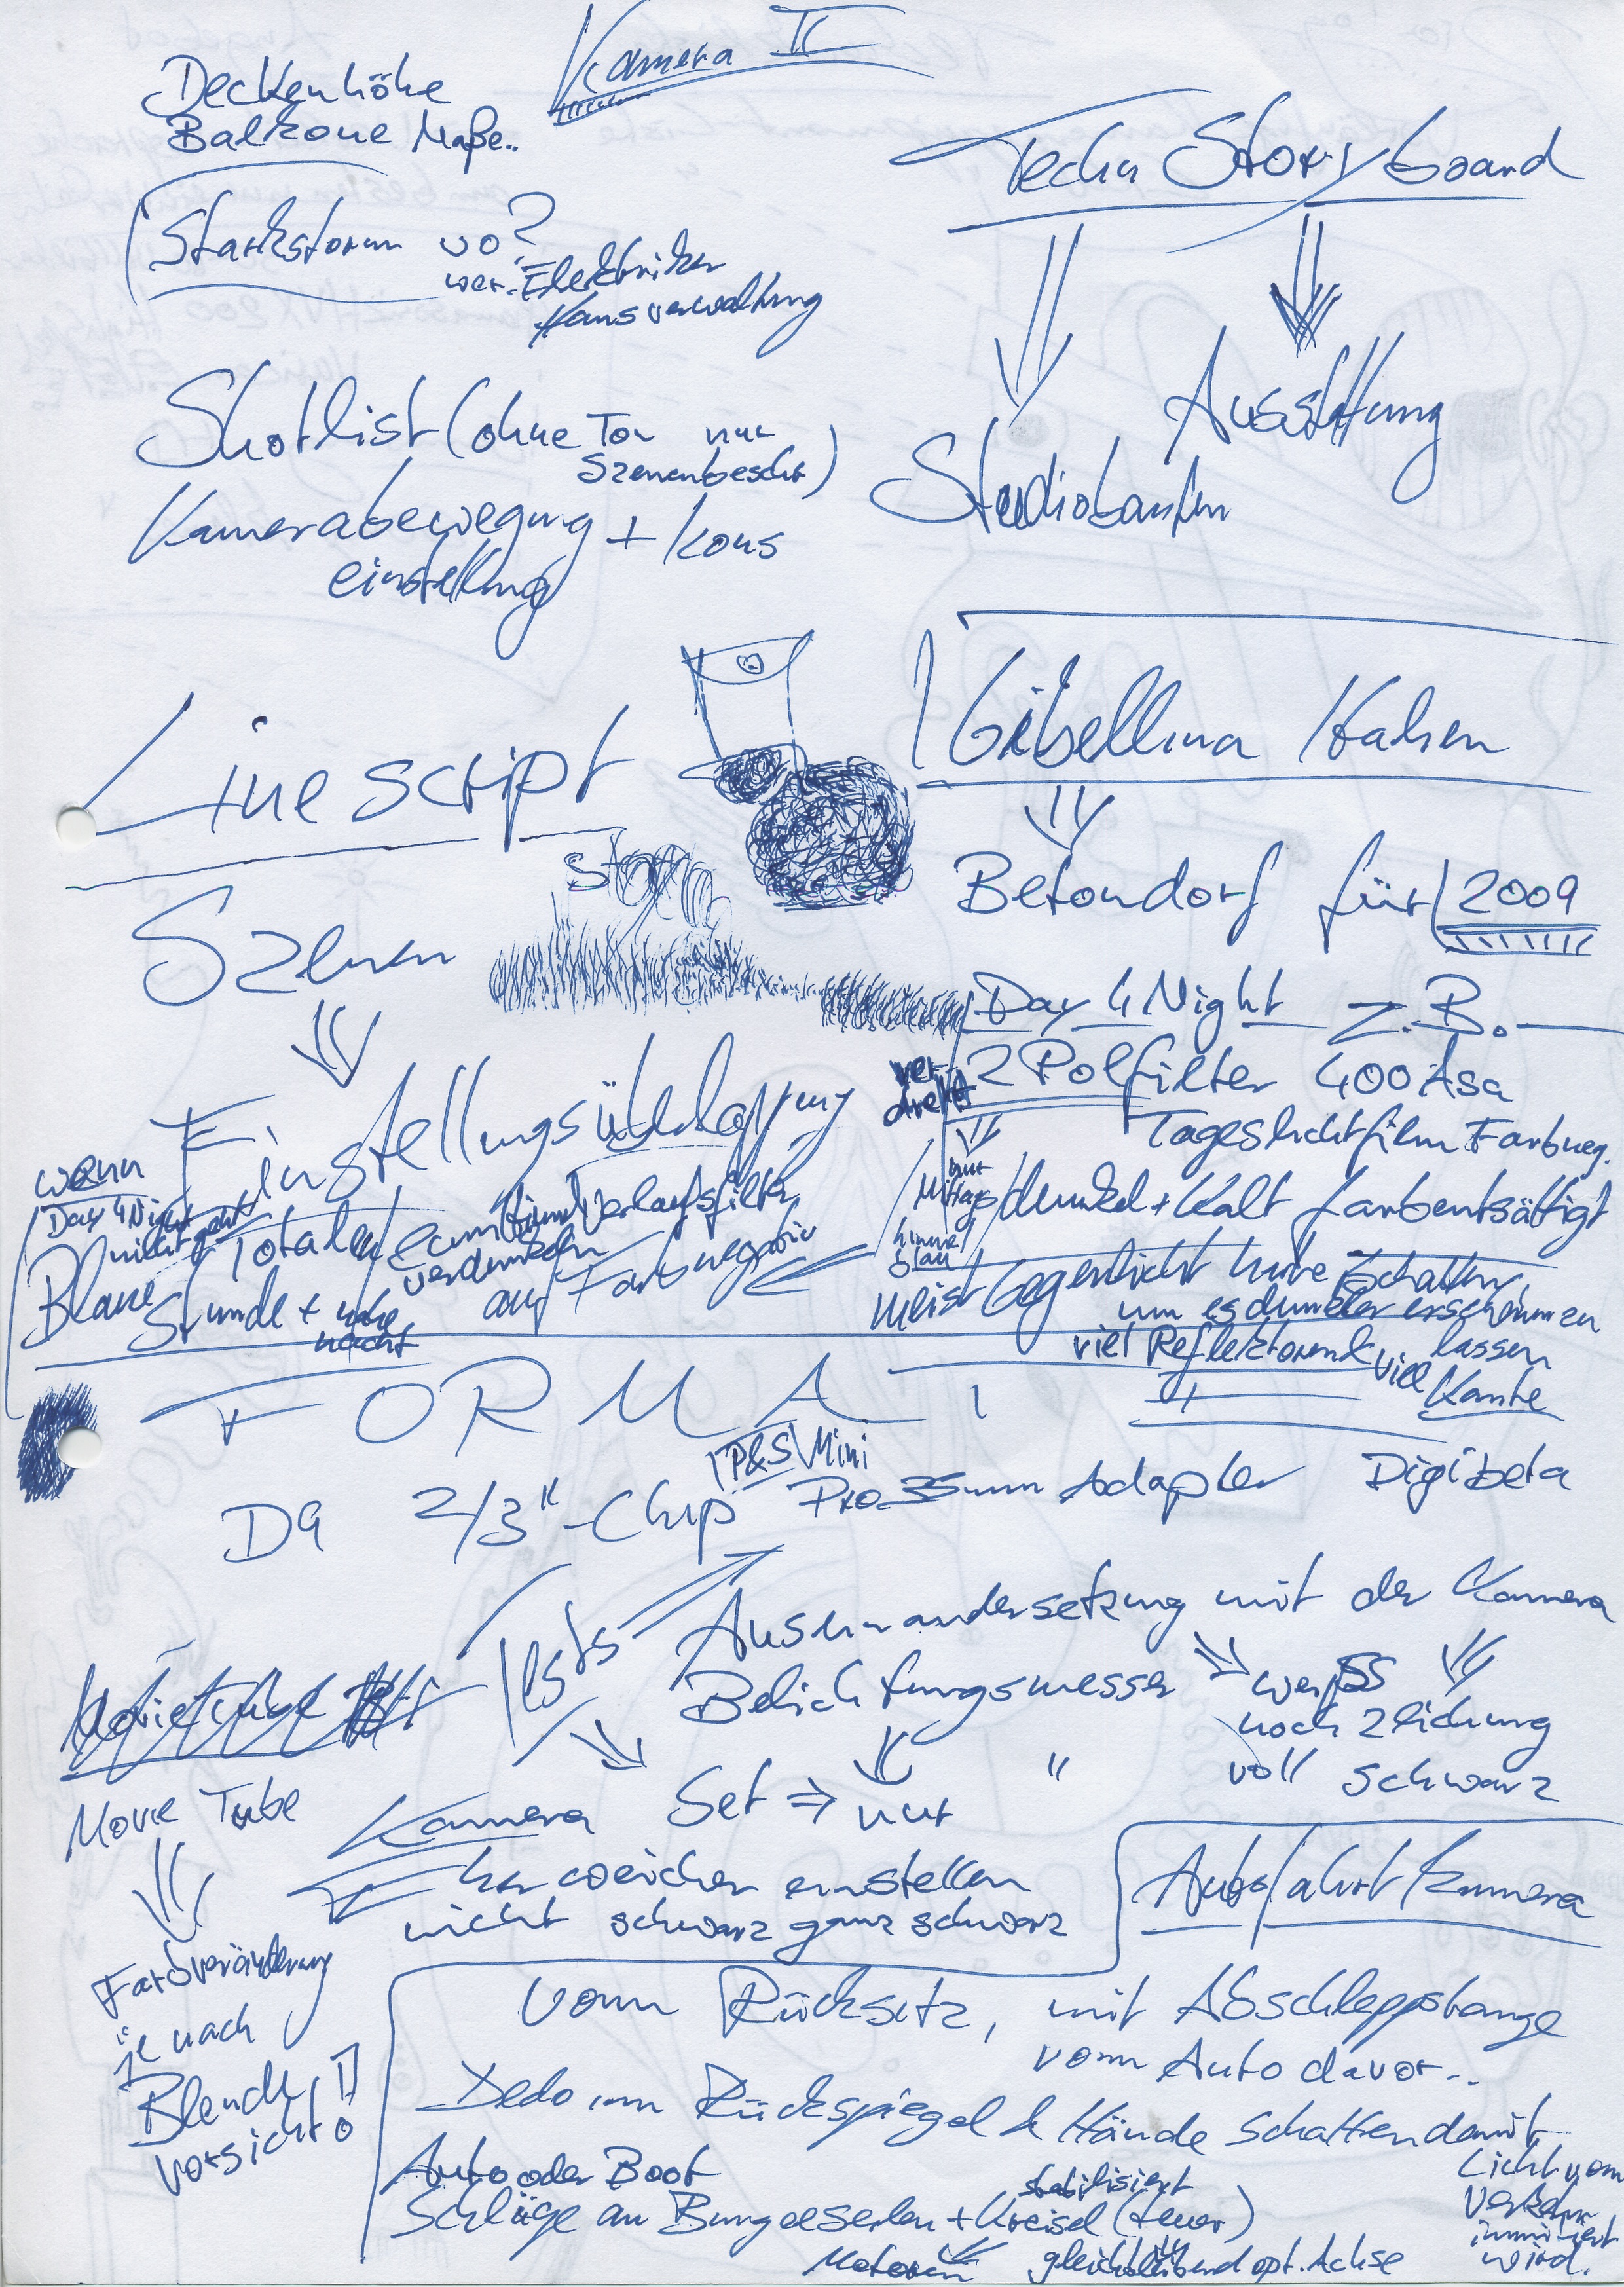 Kamera II
Deckenhöhe
Balkone Maße..
Starkstorm wo?
wer. Elektriker
Hausverwaltung
Techn Storyboard
Ausstattung
Studiobauten
Shotlist (ohne Ton nur
Szenenbeschr)
Kamerabewegung + Kons
einstellung
Line script
Story
Szenen
Einstellungsüberlappung
Gibellina Italien
Betondorf für 2009
Day 4 Night z.B.
ver-
dreht
2 Polfilter 400 Asa
Tageslichtfilm Farbneg.
nur
Mittags
himmel
blau
dunkel + kalt farbentsättigt
meist Gegenlicht kurze Schatten,
um es dunkler erscheinen zu
lassen
viel Reflektoren & viel
Kante
wenn
Day 4 Night
nicht geht
Totalen
Himmel Verlaufsfilter
verdunkeln
Blaue Stunde + nahe
nacht
auf Farbnegativ
FORMAT
P&S Mini
D9 2/3"-Chip Pro 35mm Adapter Digibeta
Tests
Auseinandersetzung mit der Kamera
Belichtungsmesser
weiß
noch Zeichnung
voll schwarz
Set ⇒ nur "
Movie Tube
Kamera
her weicher einstellen
nicht schwarz ganz schwarz
Farbveränderung
je nach
Blende,
Vorsicht!
Autofahrt Kamera
vom Rücksitz, mit Abschleppstange
vom Auto davor..
Dedo im Rückspiegel & Hände Schatten damit
Licht vom
Verkehr
immitiert
wird.
Auto oder Boot
Schläge an Bungeeseilen + Kreisel (teuer)
stabilisiert
Motoren gleichbleibend opt. Achse